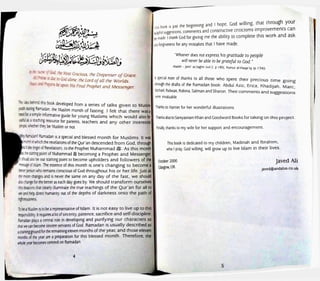 In the name of God, the Most Gracious, the Dispenser of Grace
All Praise is due to God alone, the Lord of all the Worlds
Peace and Prayers be upon His Final Prophet and Messenger
The idea behind this book developed from a series of talks given to Muslim
youth during Ramadan, the Muslim month of fasting. I felt that there was a
need for a simple informative guide for young Muslims which would also be
useful as a teaching resource for parents, teachers and any other interested
people, whether they be Muslim or not.
Why Ramadan? Ramadan is a special and blessed month for Muslims. It was
month in which the revelations of the Qur'an descended from God, through
the Angel of Revelation, to the Prophet Muhammad. As this month
starting point of Muhammad becoming a Prophet and Messenger
should use be our starting point to become upholders and followers of the
message of Islam. The essence of this month is one's changing to become a
better person who remains conscious of God throughout his or her life. Just as
the moon changes and is never the same on any day of the fast, we should
also change for the better as each day goes by. We should transform ourselves
into beacons that clearly illuminate the true teachings of the Qur'an for all to
see and help divert humanity out of the depths of darkness onto the path of
righteousness.
To be a Muslim is to be a representative of Islam. It is not easy to live up to this
responsibility; it requires a lot of sincerity, patience, sacrifice and self discipline.
Ramadan plays a central role in developing and purifying our characters so
that we can become sincere servants of God. Ramadan is usually described as
a training ground for the remaining eleven months of the year, and those eleven
months of the year are a preparation for this blessed month. Therefore, the
whole year becomes centred on Ramadan.
4
this book is just the beginning and I hope, God willing, that through your
suggestions, comments and constructive criticisms improvements can
be made. I thank God for giving me the ability to complete this work and ask
forgiveness for any mistakes that I have made.
"Whoever does not express his gratitude to people
will never be able to be grateful to God."
special note of thanks to all those who spent their precious time going
through the drafts of the Ramadan book: Abdul Aziz, Erica, Khadijah, Manc,
Rahma, Salman and Sharon. Their comments and suggestions
were invaluable.
Thanks to Harriet for her wonderful illustrations.
Thanks also to Saniyasnain Khan and Goodword Books for taking on this project.
Finally, thanks to my wife for her support and encouragement.
This book is dedicated to my children, Madinah and Ibrahim,
who I pray, God willing, will grow up to live Islam in their lives.
October 2000
Glasgow, UK
Javed Ali
5